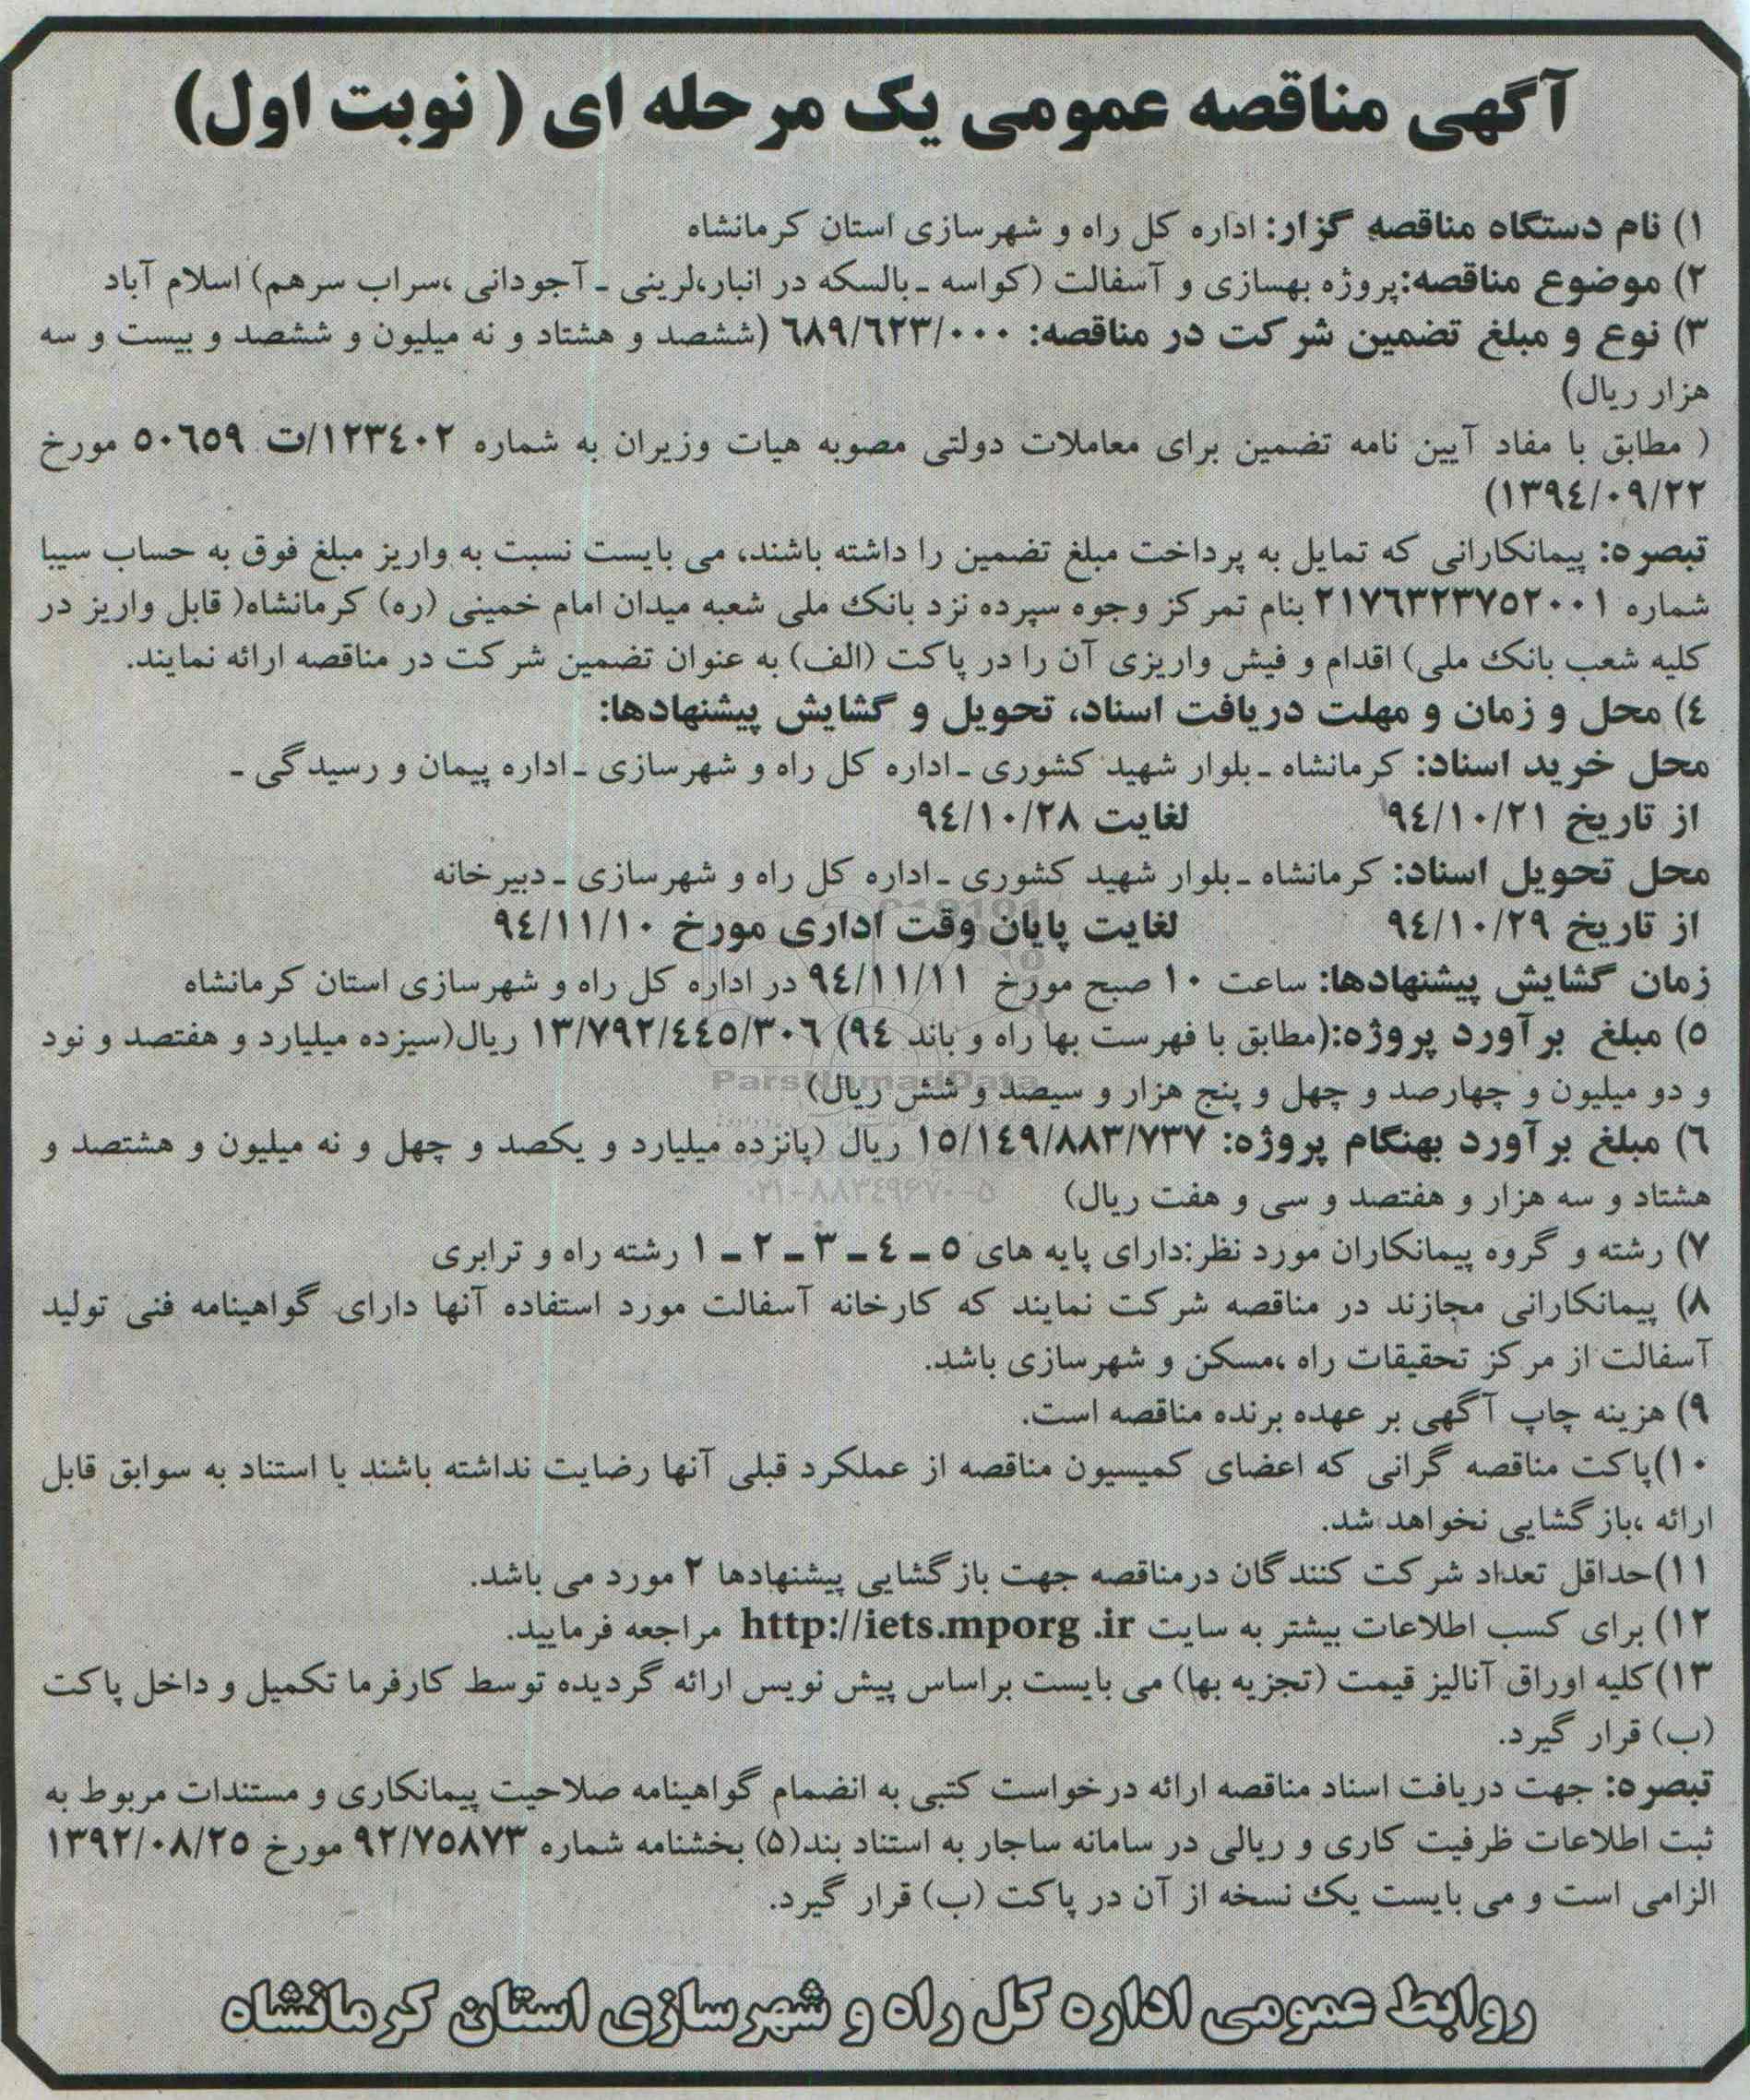 آگهی مناقصه عمومی یک مرحله ای ( نوبت اول)
۱) نام دستگاه مناقصه گزار: اداره کل راه و شهرسازی استان کرمانشاه
۲) موضوع مناقصه:پروژه بهسازی و آسفالت (کواسه ـ بالسکه در انبار،لرینی ـ آجودانی ،سراب سرهم) اسلام آباد
۳) نوع و مبلغ تضمین شرکت در مناقصه: ۶۸۹/۶۲۳/۰۰۰ (ششصد و هشتاد و نه میلیون و ششصد و بیست و سه
هزار ریال)
( مطابق با مفاد آیین نامه تضمین برای معاملات دولتی مصوبه هیات وزیران به شماره ۱۲۳۴۰۲/ت ۵۰۶۵۹ مورخ
۱۳۹۴/۰۹/۲۲)
تبصره: پیمانکارانی که تمایل به پرداخت مبلغ تضمین را داشته باشند، می بایست نسبت به واریز مبلغ فوق به حساب سیبا
شماره ۲۱۷۶۳۲۳۷۵۲۰۰۱ بنام تمرکز وجوه سپرده نزد بانک ملی شعبه میدان امام خمینی (ره) کرمانشاه( قابل واریز در
کلیه شعب بانک ملی) اقدام و فیش واریزی آن را در پاکت (الف) به عنوان تضمین شرکت در مناقصه ارائه نمایند.
۴) محل و زمان و مهلت دریافت اسناد، تحویل و گشایش پیشنهادها:
محل خرید اسناد: کرمانشاه ـ بلوار شهید کشوری ـ اداره کل راه و شهرسازی ـ اداره پیمان و رسیدگی ـ
از تاریخ ۹۴/۱۰/۲۱ لغایت ۹۴/۱۰/۲۸
محل تحویل اسناد: کرمانشاه ـ بلوار شهید کشوری ـ اداره کل راه و شهرسازی ـ دبیرخانه
از تاریخ ۹۴/۱۰/۲۹ لغایت پایان وقت اداری مورخ ۹۴/۱۱/۱۰
زمان گشایش پیشنهادها: ساعت ۱۰ صبح مورخ ۹۴/۱۱/۱۱ در اداره کل راه و شهرسازی استان کرمانشاه
۵) مبلغ برآورد پروژه:(مطابق با فهرست بها راه و باند ۹۴) ۱۳/۷۹۲/۴۴۵/۳۰۶ ریال(سیزده میلیارد و هفتصد و نود
و دو میلیون و چهارصد و چهل و پنج هزار و سیصد و شش ریال)
ParsNamadData
۶) مبلغ برآورد بهنگام پروژه: ۱۵/۱۴۹/۸۸۳/۷۳۷ ریال (پانزده میلیارد و یکصد و چهل و نه میلیون و هشتصد و
هشتاد و سه هزار و هفتصد و سی و هفت ریال)
۰۲۱-۸۸۳۴۹۶۷۰-۵
۷) رشته و گروه پیمانکاران مورد نظر:دارای پایه های ۵ ـ ۴ ـ ۳ ـ ۲ ـ ۱ رشته راه و ترابری
۸) پیمانکارانی مجازند در مناقصه شرکت نمایند که کارخانه آسفالت مورد استفاده آنها دارای گواهینامه فنی تولید
آسفالت از مرکز تحقیقات راه ،مسکن و شهرسازی باشد.
۹) هزینه چاپ آگهی بر عهده برنده مناقصه است.
۱۰)پاکت مناقصه گرانی که اعضای کمیسیون مناقصه از عملکرد قبلی آنها رضایت نداشته باشند یا استناد به سوابق قابل
ارائه ،بازگشایی نخواهد شد.
۱۱)حداقل تعداد شرکت کنندگان درمناقصه جهت بازگشایی پیشنهادها ۲ مورد می باشد.
۱۲) برای کسب اطلاعات بیشتر به سایت http://iets.mporg .ir مراجعه فرمایید.
۱۳)کلیه اوراق آنالیز قیمت (تجزیه بها) می بایست براساس پیش نویس ارائه گردیده توسط کارفرما تکمیل و داخل پاکت
(ب) قرار گیرد.
تبصره: جهت دریافت اسناد مناقصه ارائه درخواست کتبی به انضمام گواهینامه صلاحیت پیمانکاری و مستندات مربوط به
ثبت اطلاعات ظرفیت کاری و ریالی در سامانه ساجار به استناد بند(۵) بخشنامه شماره ۹۲/۷۵۸۷۳ مورخ ۱۳۹۲/۰۸/۲۵
الزامی است و می بایست یک نسخه از آن در پاکت (ب) قرار گیرد.
روابط عمومی اداره کل راه و شهرسازی استان کرمانشاه